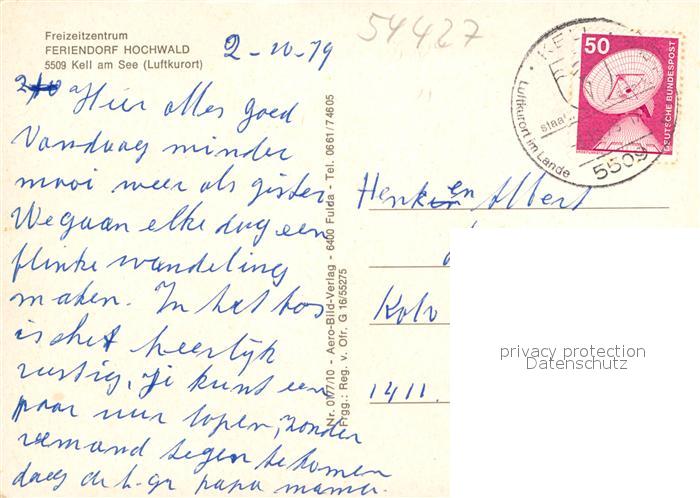 Freizeitzentrum
FERIENDORF HOCHWALD
5509 Kell am See (Luftkurort)
2-10-79
54427
Hier alles goed
Vandaag minder
mooi weer als gister
We gaan elke dag een
flinke wandeling
maken. In het bos
is het heerlijk
rustig, je kunt een
paar uur lopen, zonder
iemand tegen te komen
daag de h. gr papa mama.
Nr. 0177/10 - Aero-Bild-Verlag - 6400 Fulda - Tel. 0661/74605
Frgg.: Reg. v. Ofr. G 16/55275
50
DEUTSCHE BUNDESPOST
KELL
staatl
Luftkurort im Lande
5509
Henk en Albert
Kolv
1411.
privacy protection
Datenschutz